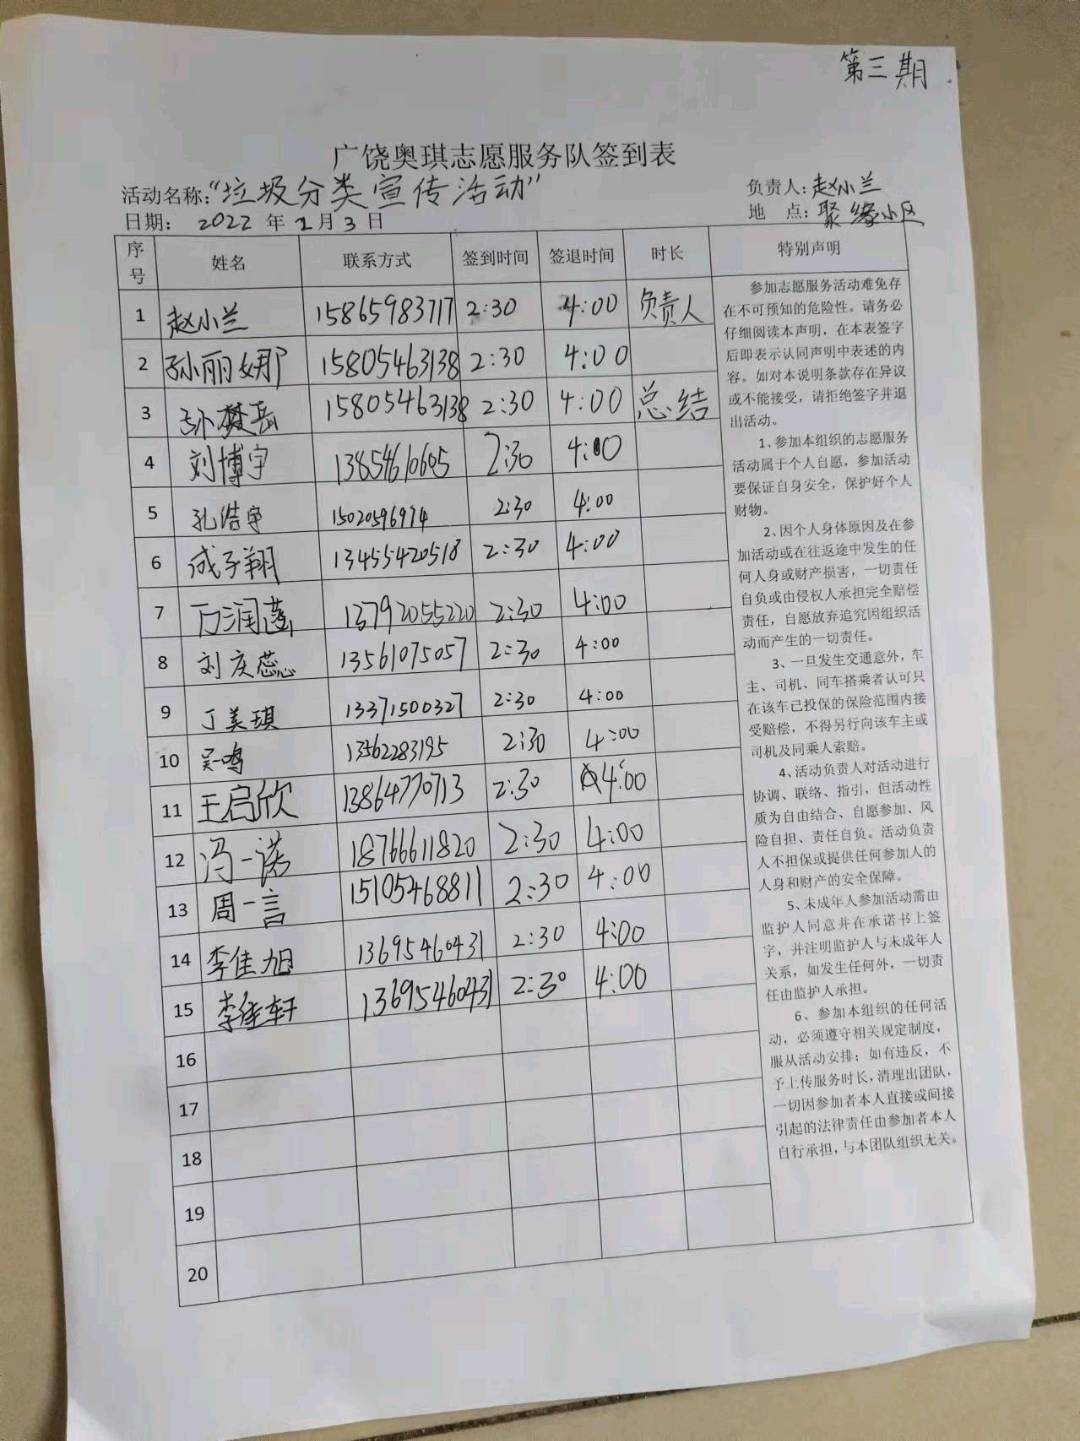 第三期
广饶奥琪志愿服务队签到表
活动名称:"垃圾分类宣传活动"
负责人:赵小兰
日期: 2022 年 1 月 3 日
地 点:聚缘小区
序号 姓名 联系方式 签到时间 签退时间 时长 特别声明
1 赵小兰 15865983717 2:30 4:00 负责人
2 孙丽娜 15805463138 2:30 4:00
3 孙樊岳 15805463138 2:30 4:00 总结
4 刘博宇 13854610605 2:30 4:00
5 孔浩宇 15020596974 2:30 4:00
6 成子翔 13455420518 2:30 4:00
7 13792055220 2:30 4:00
8 刘庆蕊 13561075057 2:30 4:00
9 丁美琪 13371500327 2:30 4:00
10 吴鸣 13562283195 2:30 4:00
11 王启欣 13864770713 2:30 4:00
12 冯一诺 18766611820 2:30 4:00
13 周一言 15105468811 2:30 4:00
14 李佳旭 13695460431 2:30 4:00
15 李佳轩 13695460431 2:30 4:00
16
17
18
19
20
参加志愿服务活动难免存
在不可预知的危险性。请务必
仔细阅读本声明，在本表签字
后即表示认同声明中表述的内
容。如对本说明条款存在异议
或不能接受，请拒绝签字并退
出活动。
1、参加本组织的志愿服务
活动属于个人自愿，参加活动
要保证自身安全，保护好个人
财物。
2、因个人身体原因及在参
加活动或在往返途中发生的任
何人身或财产损害，一切责任
自负或由侵权人承担完全赔偿
责任，自愿放弃追究因组织活
动而产生的一切责任。
3、一旦发生交通意外，车
主、司机、同车搭乘者认可只
在该车已投保的保险范围内接
受赔偿，不得另行向该车主或
司机及同乘人索赔。
4、活动负责人对活动进行
协调、联络、指引，但活动性
质为自由结合、自愿参加、风
险自担、责任自负。活动负责
人不担保或提供任何参加人的
人身和财产的安全保障。
5、未成年人参加活动需由
监护人同意并在承诺书上签
字，并注明监护人与未成年人
关系，如发生任何外，一切责
任由监护人承担。
6、参加本组织的任何活
动，必须遵守相关规定制度，
服从活动安排；如有违反，不
予上传服务时长，清理出团队，
一切因参加者本人直接或间接
引起的法律责任由参加者本人
自行承担，与本团队组织无关。